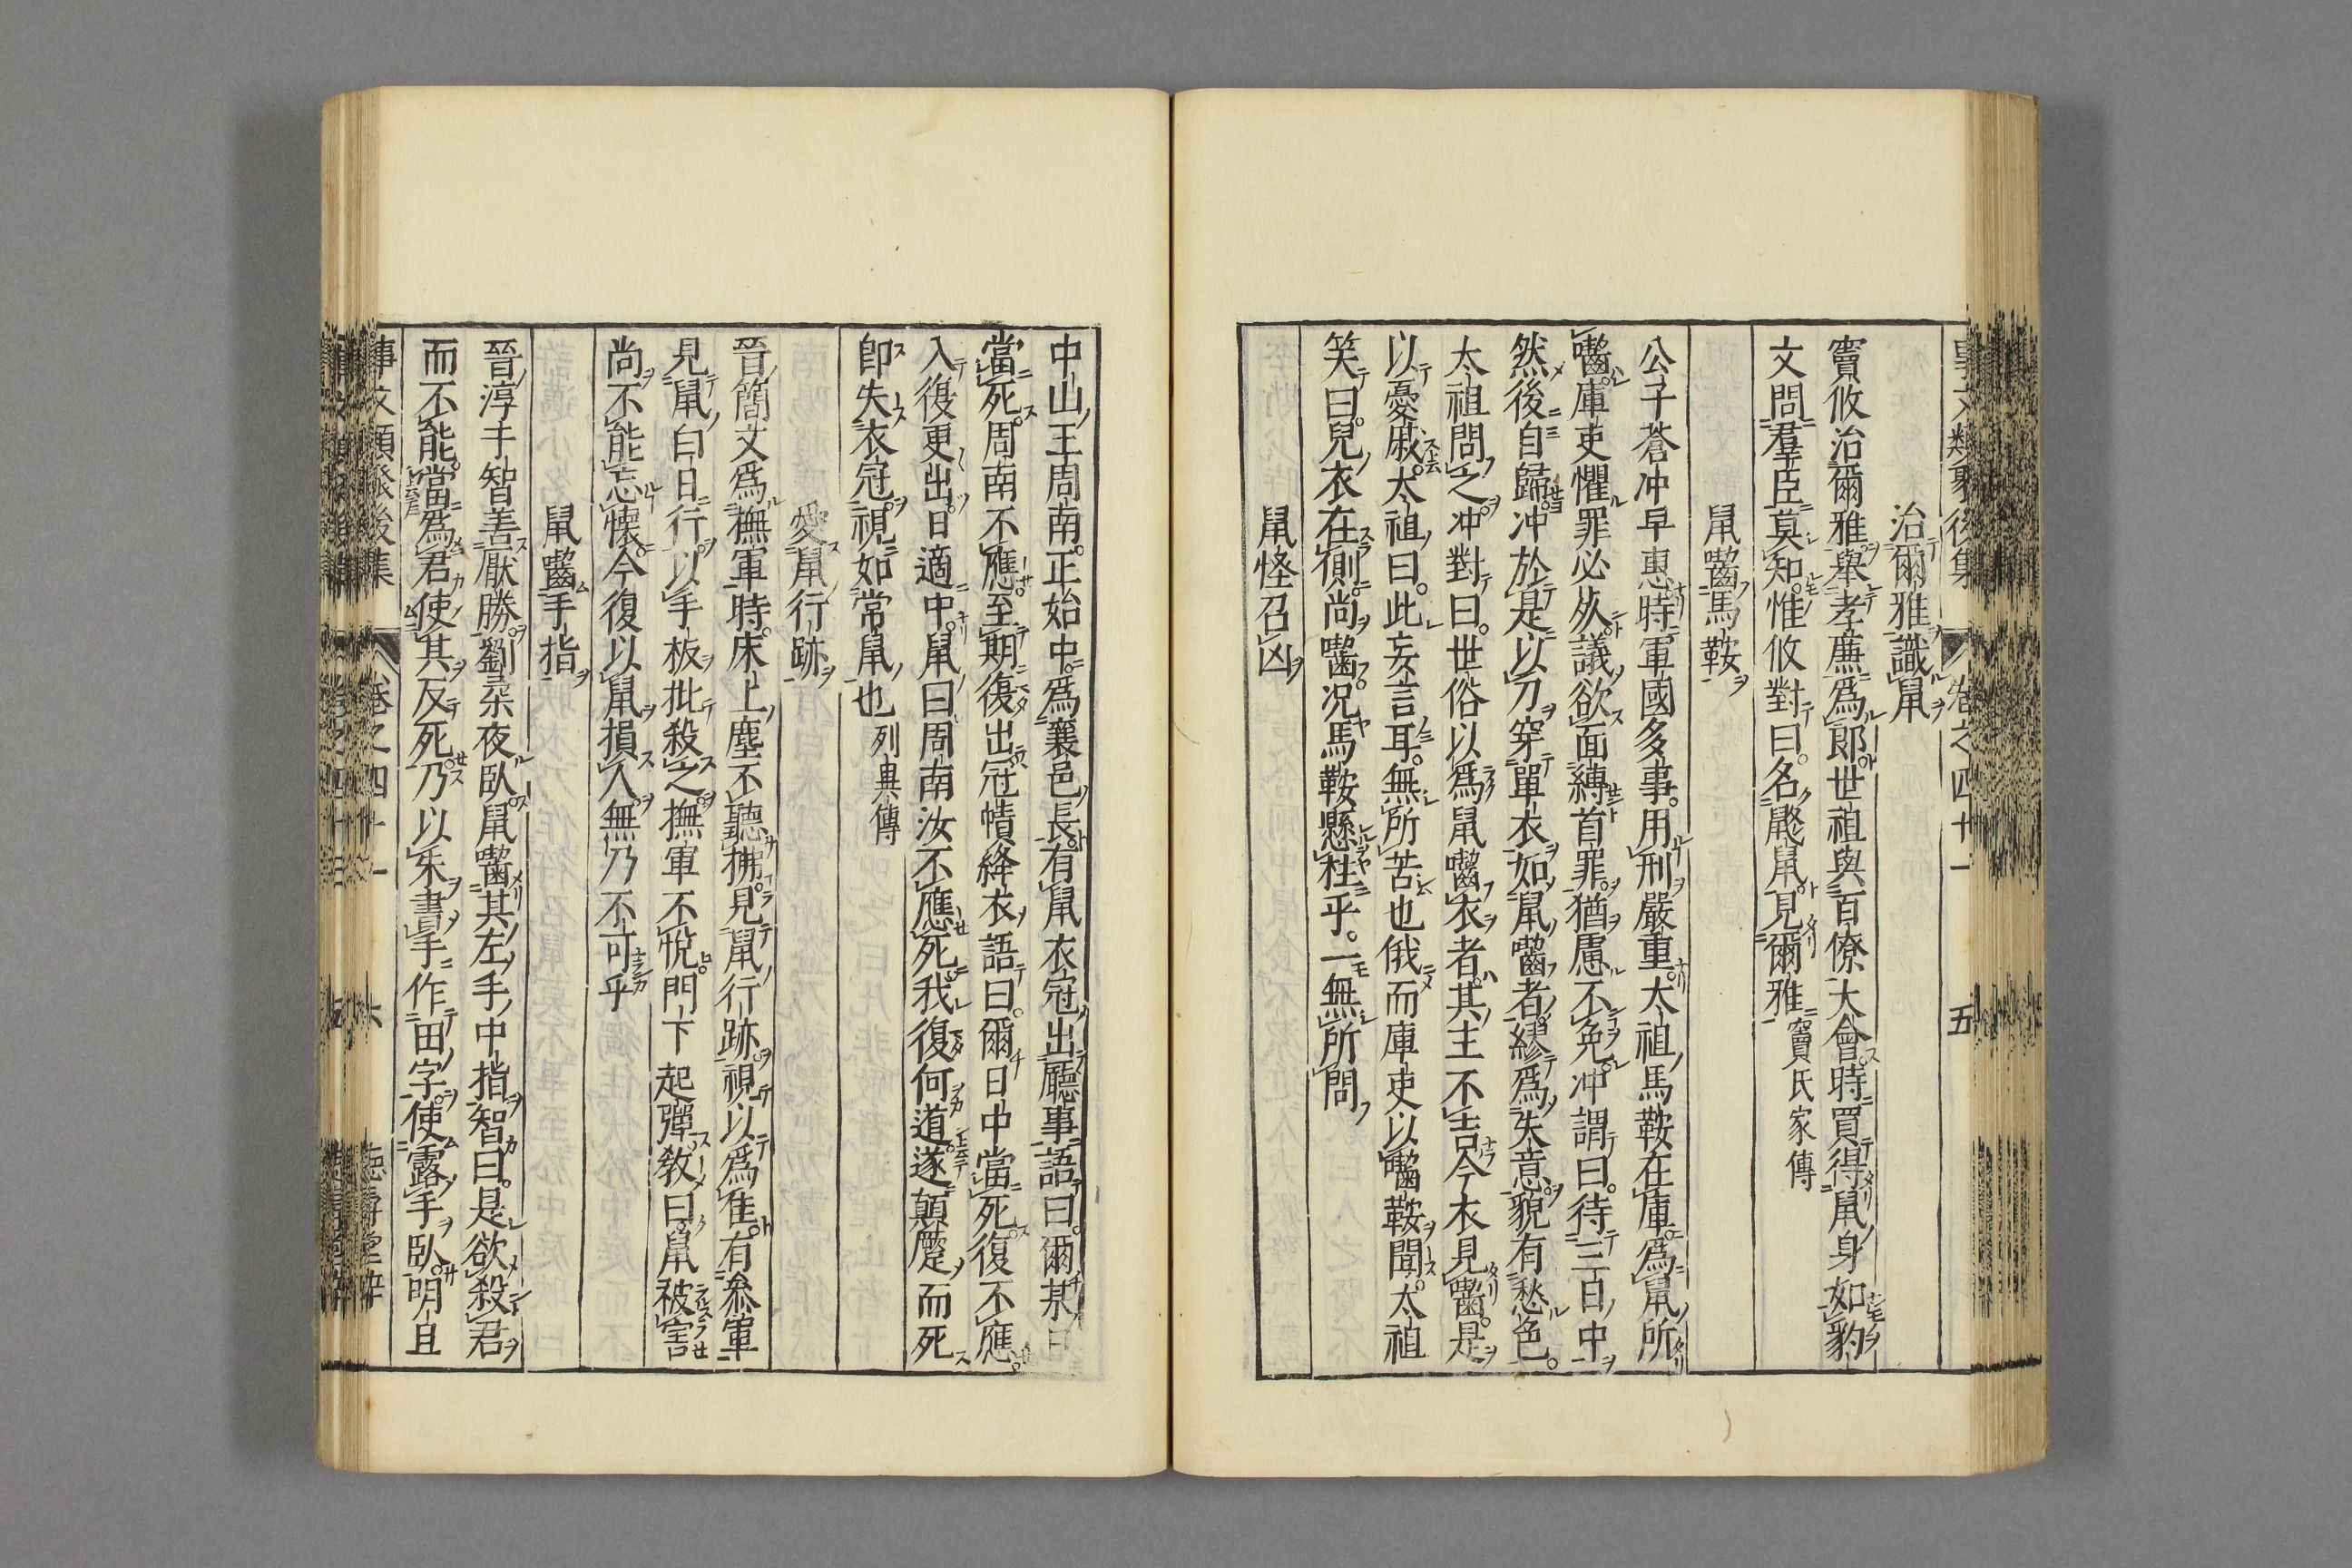 治爾雅識鼠
竇攸治爾雅舉孝廉爲郎世祖與百僚大會時買得鼠身如豹
文問羣臣莫知惟攸對曰名鼮鼠見爾雅竇氏家傳
鼠嚙馬鞍
公子蒼冲早惠時軍國多事用刑嚴重太祖馬鞍在庫爲鼠所
嚙庫吏懼罪必死議欲面縛首罪猶慮不免冲謂曰待三日中
然後自歸冲於是以刀穿單衣如鼠嚙者繆爲失意貌有愁色
太祖問之冲對曰世俗以爲鼠嚙衣者其主不吉今衣見嚙是
以憂戚太祖曰此妄言耳無所苦也俄而庫吏以嚙鞍聞太祖
笑曰兒衣在側尚嚙况馬鞍懸柱乎一無所問
鼠怪召凶
中山王周南正始中爲襄邑長有鼠衣冠出廳事語曰爾某日
當死周南不應至期復出冠幘絳衣語曰爾日中當死復不應
入復更出日適中鼠曰周南汝不應死我復何道遂顛蹷而死
卽失衣冠視如常鼠也列異傳
愛鼠行跡
晉簡文爲撫軍時床上塵不聽拂見鼠行跡視以爲佳有參軍
見鼠白日行以手板批殺之撫軍不悅門下起彈敎曰鼠被害
尚不能忘懷今復以鼠損人無乃不可乎
鼠嚙手指
晉淳于智善厭勝劉柔夜臥鼠嚙其左手中指智曰是欲殺君
而不能當爲君使其反死乃以朱書手作田字使露手臥明旦
事文類聚後集
卷之四十一